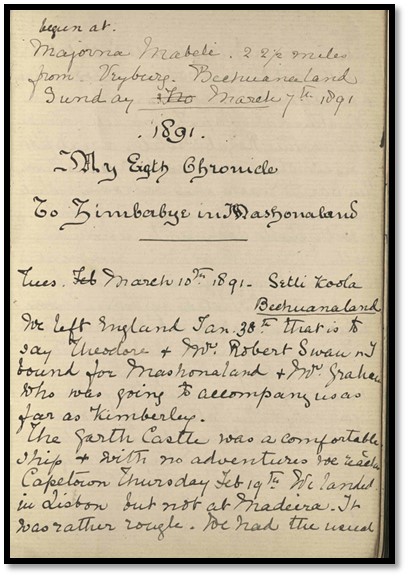 begun at.
Majorna Mabeli. 22½ miles
from Vryburg. Bechuanaland
Sunday March 7th 1891
1891.
My Eigth Chronicle
To Zimbabye in Mashonaland
Tues. Feb March 10th 1891 - Setli Koola
Bechuanaland
We left England Jan. 30th that is to
say Theodore & Mr. Robert Swan & I
bound for Mashonaland & Mr. Graham
who was going to accompany us as
far as Kimberley.
The Garth Castle was a comfortable
ship & with no adventures we reached
Capetown Thursday Feb 19th We landed
in Lisbon but not at Madeira. It
was rather rough. We had the usual